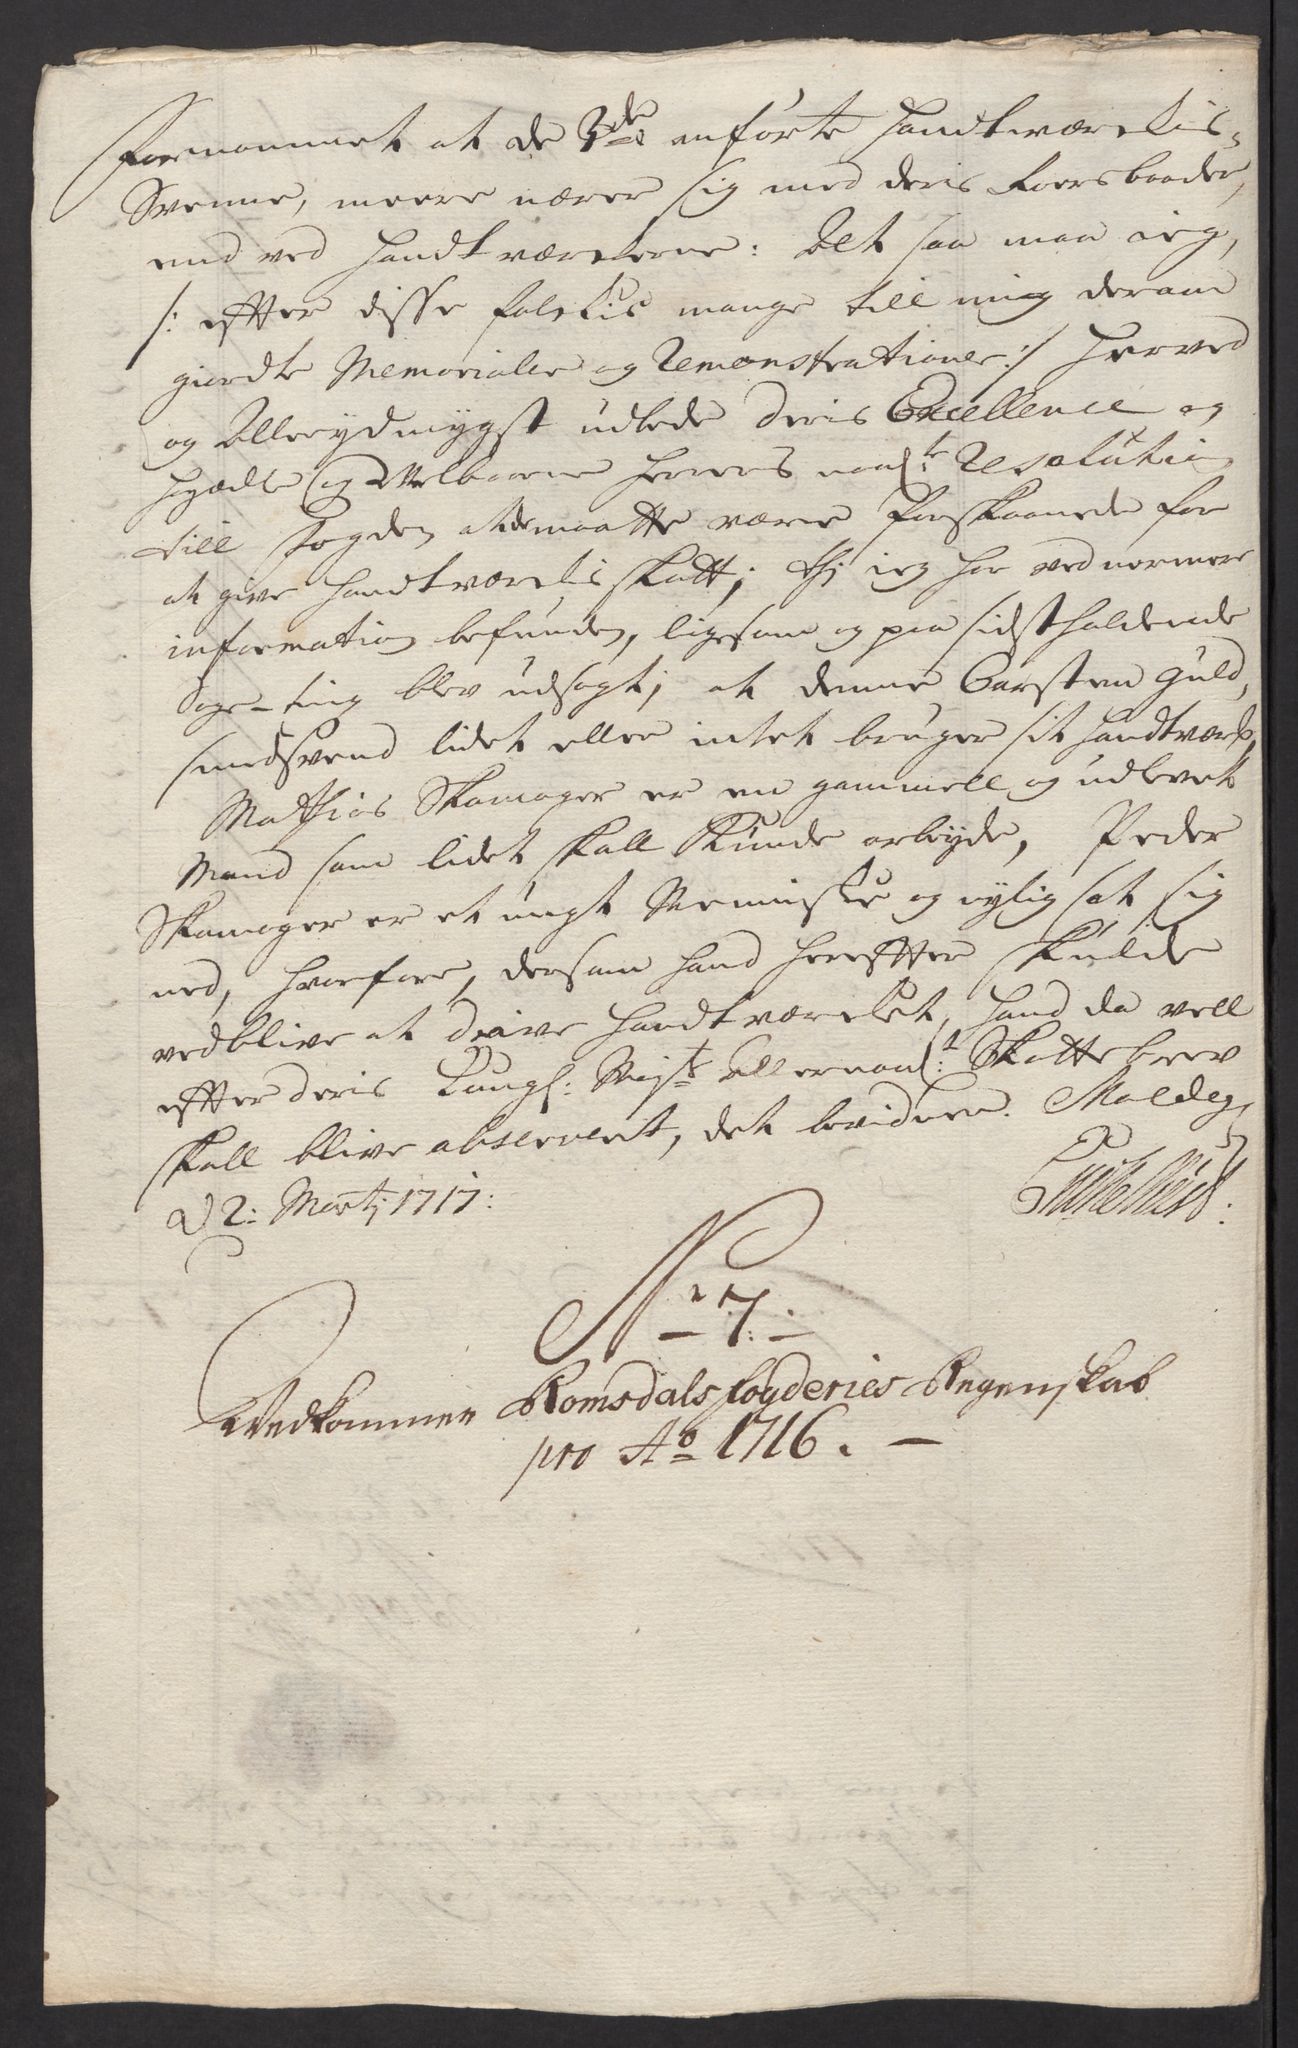 Fornommet at de 3de anførte Handtværckis-
Svenne, meere nærer sig med deris Foersbaader,
end ved Handtværckerne: Alt saa maa ieg,
/: efter disse folckis mange till mig derom
giordte Memorialer og Remonstrationer :/ herved
og Allerydmygst udbede deris Excellence og
høyædle og Velbaarne Herres naadl: Resolution
till Fogden at de maatte være forskaanede for
at give Handtværckis skatt; thj ieg har ved nermere
information befunden, ligesom og paa sidstholdende
Sage-ting blev udsagt; at denne Carsten Guld,
smedsvend lidet eller intet bruger sit Handtværck,
Mathias Skomager er en gammell og udlevet
Mand som lidet skall kunde arbeyde, Peder
Skomager er et ungt Menniske og nylig sat sig
ned, hvorfore, dersom hand herefter skulde
vedblive at drive Handtværcket, hand da vell
efter deris Kongl: Mayts Allernaadl: Skattebrev
skall blive observerit, det bevidner. Molde
d 2: Martj 1717:
No 7.
Vedkommer Romsdals fogderies Regenskab
pro Ao 1716.